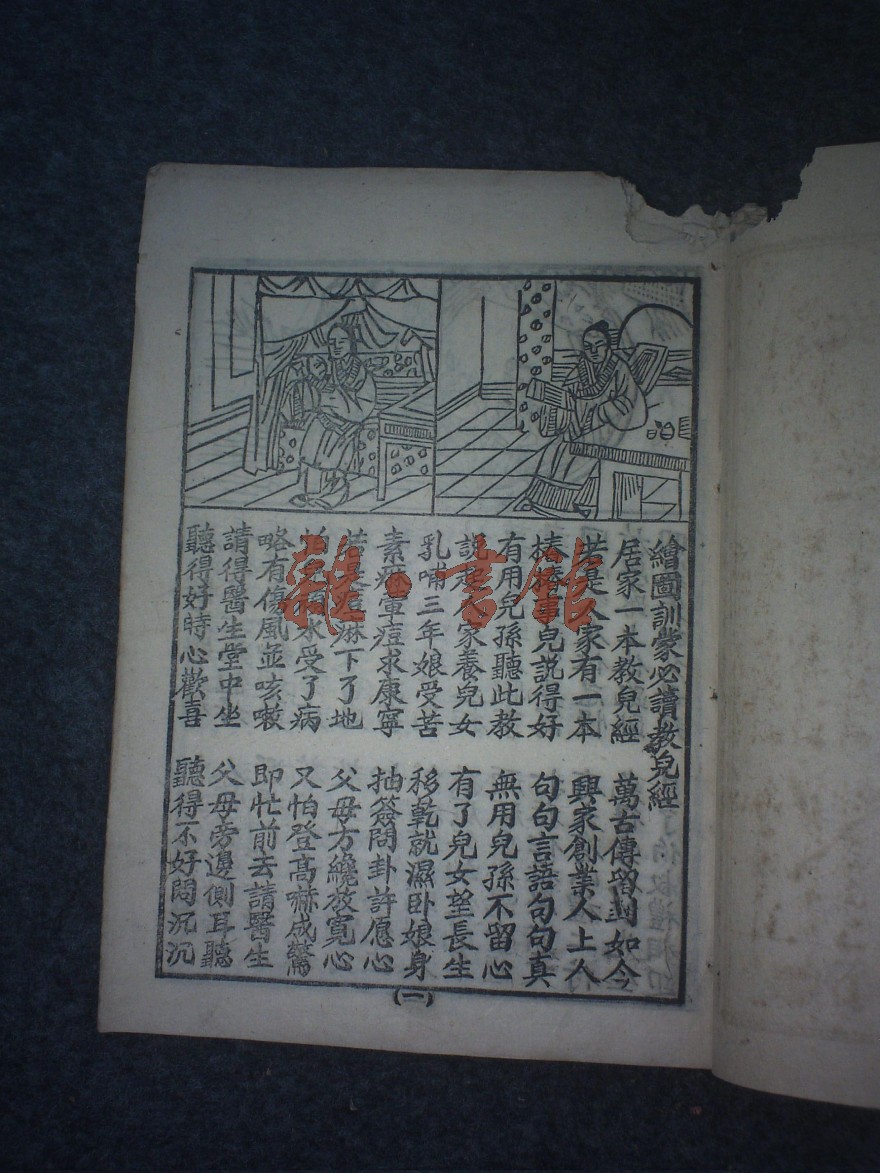 繪圖訓蒙必讀教兒經
居家一本教兒經 萬古傳留到如今
若是人家有一本 興家創業人上人
樁樁事兒説得好 句句言語句句真
有用兒孫聽此教 無用兒孫不留心
説起人家養兒女 有了兒女望長生
乳哺三年娘受苦 移乾就濕卧娘身
素痳軍痘求康寧 抽簽問卦許愿心
若是痘痳下了地 父母方纔放寬心
怕 水受了病 又怕登高嚇成驚
略有傷風並咳嗽 即忙前去請醫生
請得醫生堂中坐 父母旁邊側耳聽
聽得好時心歡喜 聽得不好悶沉沉
(一)
雜·書館